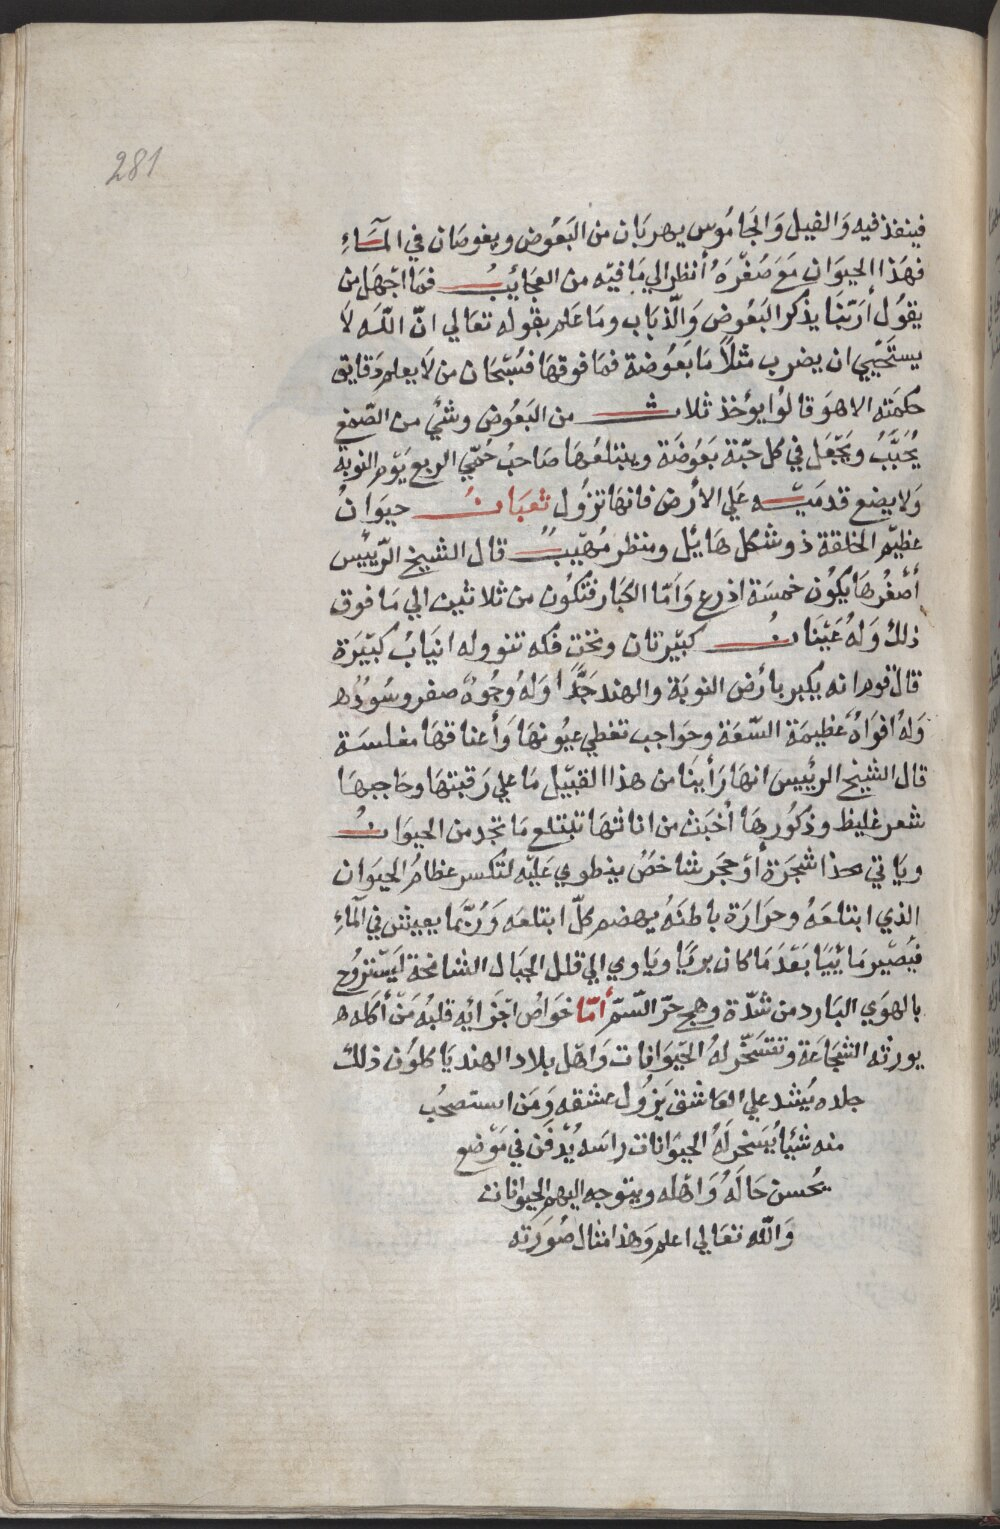 281
فينفذ فيه وَالفيل وَالجَامُوس يهربَان من البَعُوض ويغوصَان في المآءِ
فهَذا الحيوَان مَعَ صَغْرَهُ أنظر الي مَا فيْه من العجَائِبُ فما اجْهل من
يقوُل أرَبّنا يذكر البَعُوض وَالذّبَاب ومَا عَلم بقوله تعَالي انّ اللّه لاَ
يستَحْيي ان يضرب مثلاً مَا بَعُوضة فمَا فوقهَا فسُبْحَان من لاَ يعلم دقايق
حكمَته الا هوَ قالوُا يؤخذ ثلاث من البَعُوض وشئ من الصّمغ
يُحَبَّبُ ويَجْعَل في كل حبّة بَعُوضَة ويبتلعُهَا صَاحبُ حُمّي الربع يَوْم النوبة
وَلا يضع قدمَيْه عَلي الأرض فانهَا تزوُل ثعبَان حيوَانُ
عظيْم الخلقة ذو شكل هَايْل ومنظر مُهيْبٌ قال الشيخ الرّئيْس
أصْغرُهَا يكوُن خمسَة اذرع وَأمّا الكبَار فتكوُن من ثلاثين الي مَا فوق
ذلك وَلهُ عَيْنَانُ كبيْرتان وتحت فكه نتو وله انيَابُ كبيْرَة
قال قوم انه يكبر بأرْض النوبَة والهند جَدًّا وَلهُ وجُوهٌ صفر وسُوُدُه
وَلهُ افوَاهٌ عَظيمَة السّعَة وحَواجب تغطي عيُونهَا وَأعناقهَا مفلسَة
قال الشيخ الرئيس انهَا رَأينَا من هذا القبيْل مَا علي رَقبتهَا وحَاجبهَا
شعر غليظ وذكوُرهَا أخبَث من اناثهَا تبتلع مَا تجد من الحيوَانُ
ويَاتي شجَرَة أوْ حجَر شاخصُ ينطوي عَليْه لتكسر عظامُ الحيوَان
الذي ابتلعَهُ وحرَارَة باطنَهُ يهضم كلّ ابتلعَه وَرُبّما يعيش في المآءِ
فيَصْير مَائيًا بَعْدَ مَا كان بريًا ويَاوي الي قلل الجبَال الشامخة ليَسْتروُح
بالهوَي البَارد من شدّة وهج حرّ السّمّ أمّا خوَاصُ اجْزَائِه قلبُه مَنْ أكله
يورثه الشجَاعَة وتتسَخّر لهُ الحيْوَانات وَاهْل بلاد الهند يَاكلوُن ذلك
جلده يُشد عَلي العَاشق يَزوُل عشقه وَمَن استصحُب
منه شيْئا يُسَخر لهُ الحيوَانات رَاسَه يُدْفَن في مَوْضع
يُحسن حَالهُ وَاهْله ويتوجه اليهم الحيوانات
وَاللّه تعَالي اعلم وَهذا مثال صُوَرَته